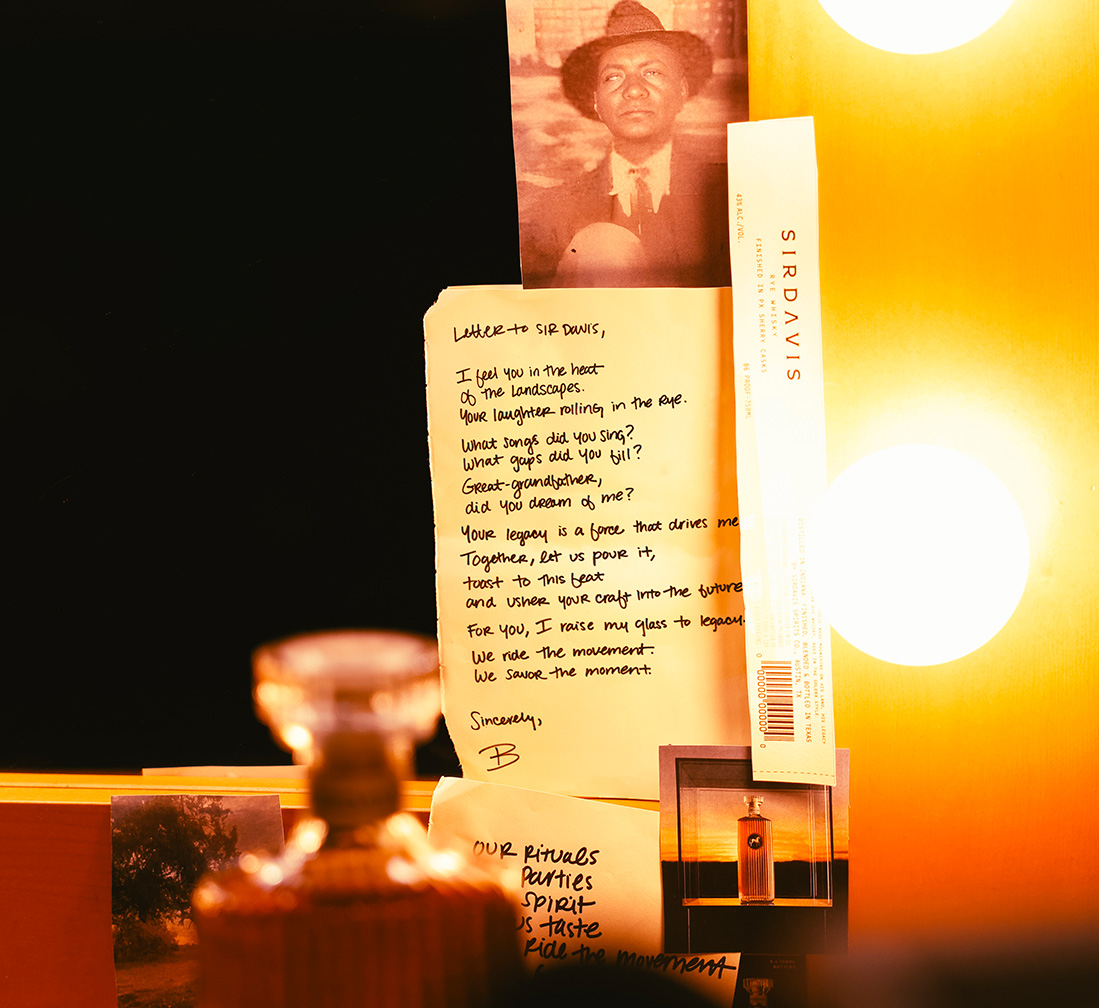 Letter to SIR DAVIS,
I feel you in the heat
of the Landscapes.
Your laughter rolling in the Rye.
What songs did you sing?
What gaps did you fill?
Great-grandfather,
did you dream of me?
Your legacy is a force that drives me
Together, let us pour it,
toast to this feat
and usher your craft into the future
For you, I raise my glass to legacy.
We ride the movement.
We savor the moment.
Sincerely,
B
SIRDAVIS
RYE WHISKY
FINISHED IN PX SHERRY CASKS
43% ALC./VOL.
86 PROOF
FINISHED, BLENDED & BOTTLED IN TEXAS
AUSTIN, TX
0 00000 00000 0
OUR RITUALS
Parties
SPIRIT
us taste
Ride the movement